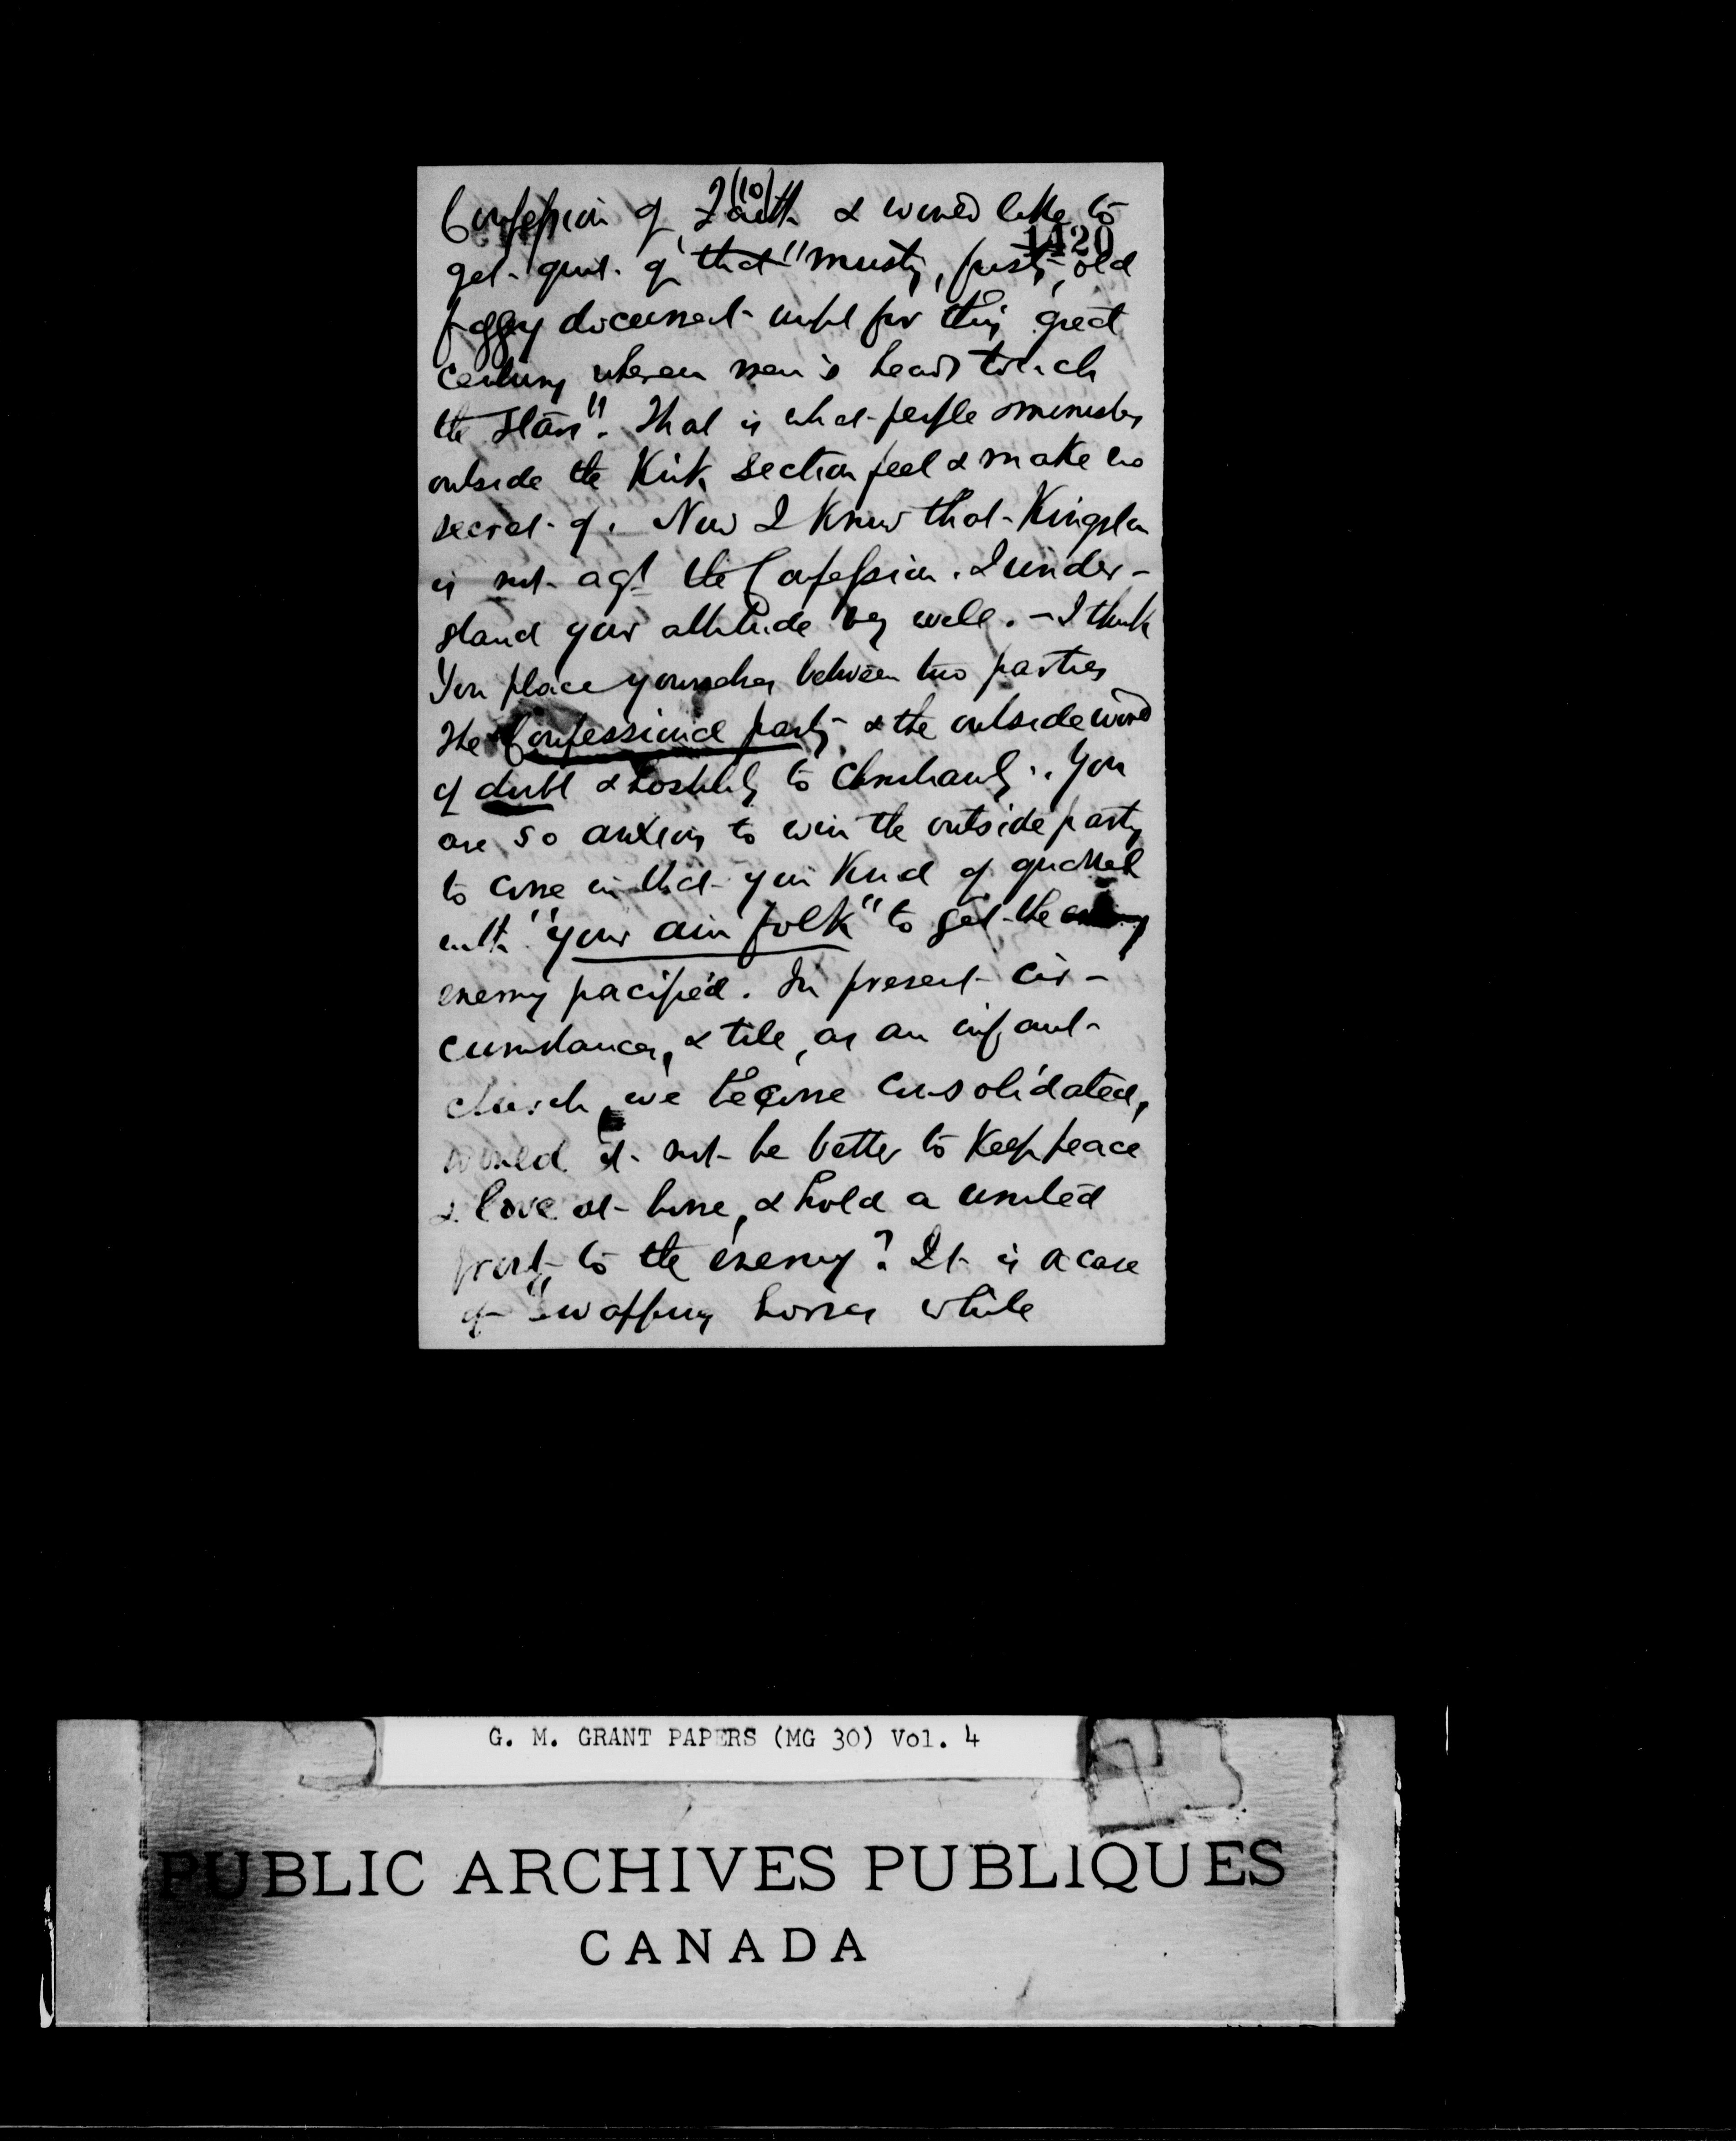 (10)
Confession of Faith & would like to
1420
get quit of that "musty, fusty, old
foggy document unfit for this great
century wherein men's heads touch
the stars". That is what people & ministers
outside the Kirk section feel & make no
secret of. Now I know that Kingston
is not agt the Confession. I under-
stand your attitude very well. – I think
You place yourselves between two parties
The Confessional party & the outside world
of doubt & hostility to Christianity. You
are so anxious to win the outside party
to come in that you kind of quarrel
with "your ain folk" to get the
enemy pacified. In present cir-
cumstances, & till, as an infant
church, we become consolidated,
would it not be better to keep peace
& love at home, & hold a united
front to the enemy? It is a case
of "swapping horses while
G. M. GRANT PAPERS (MG 30) Vol. 4
PUBLIC ARCHIVES PUBLIQUES
CANADA